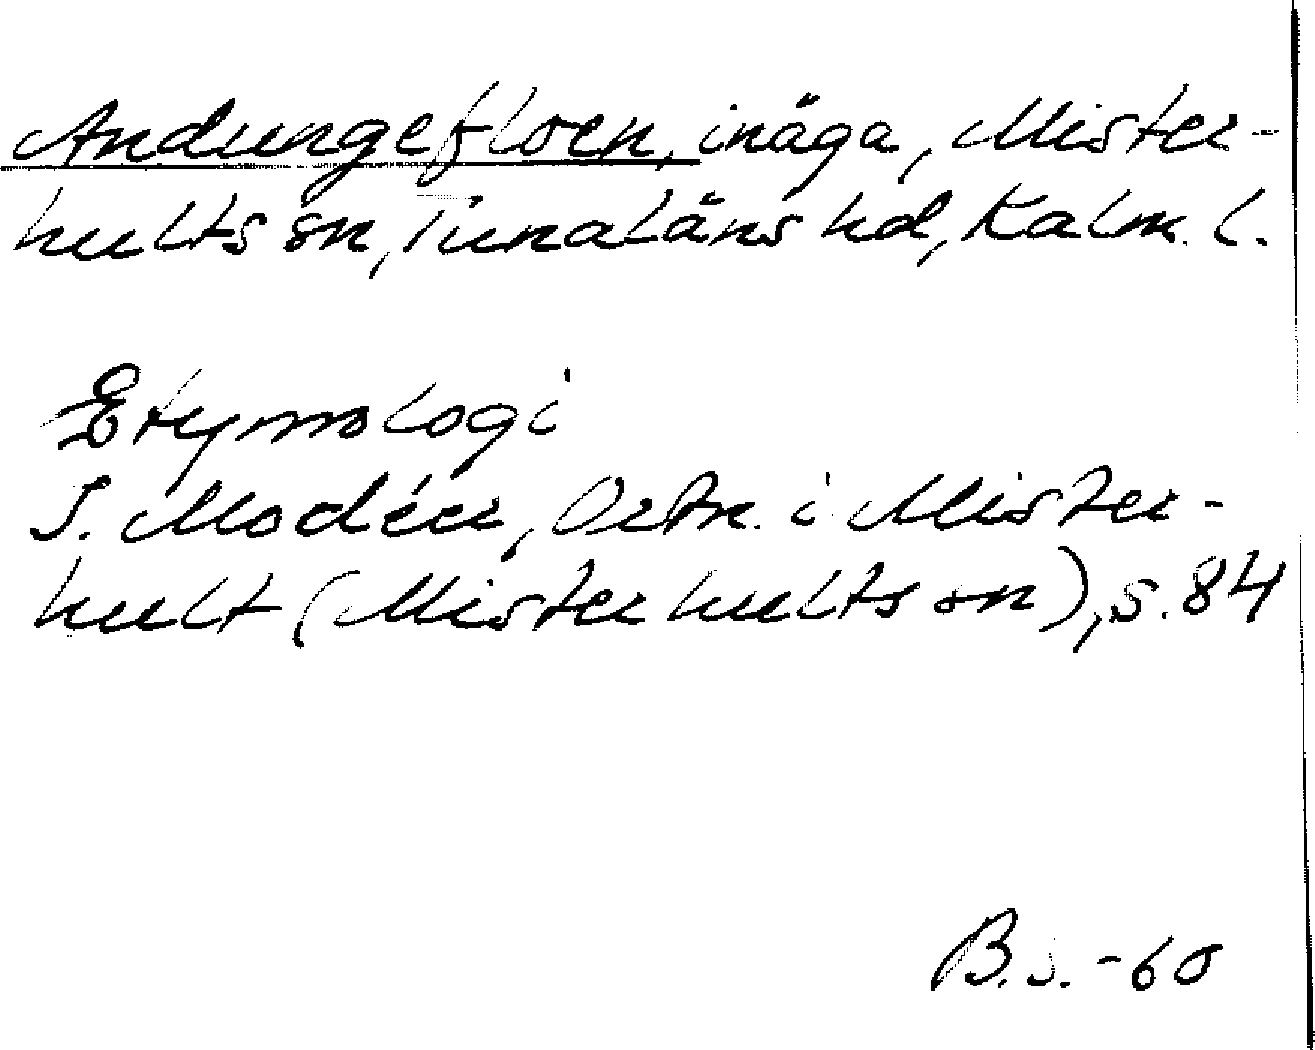 Andungefloen, inäga, Mister-
hults sn, Tunaläns hd, Kalm. l.
Etymologi
I. Modéer, Ortn. i Mister-
hult (Misterhults sn), s. 84
B.S. -60